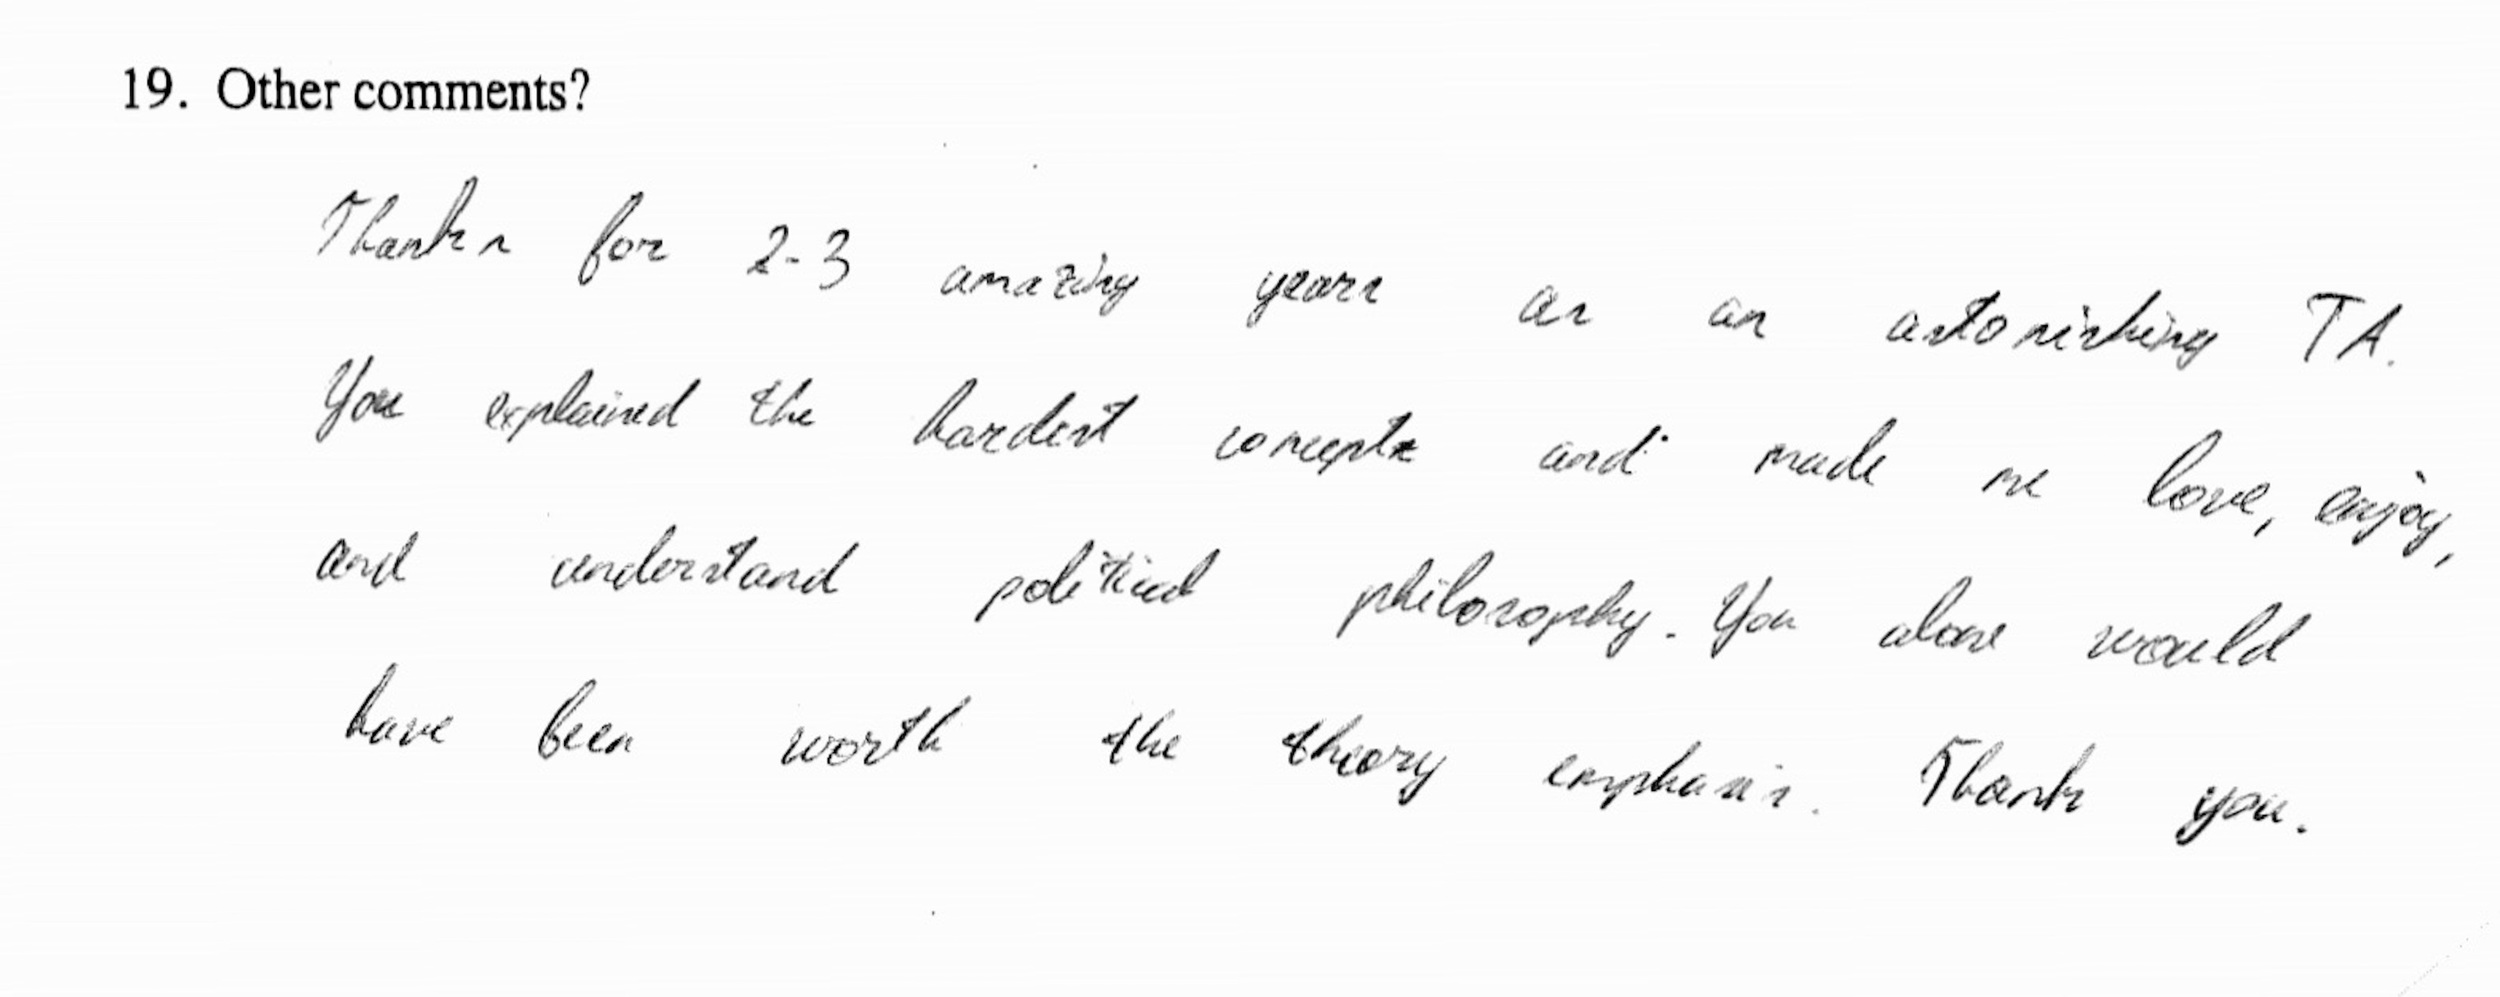 19. Other comments?
Thanks for 2-3 amazing years as an astonishing TA.
You explained the hardest concepts and made me love, enjoy,
and understand political philosophy. You alone would
have been worth the theory emphasis. Thank you.